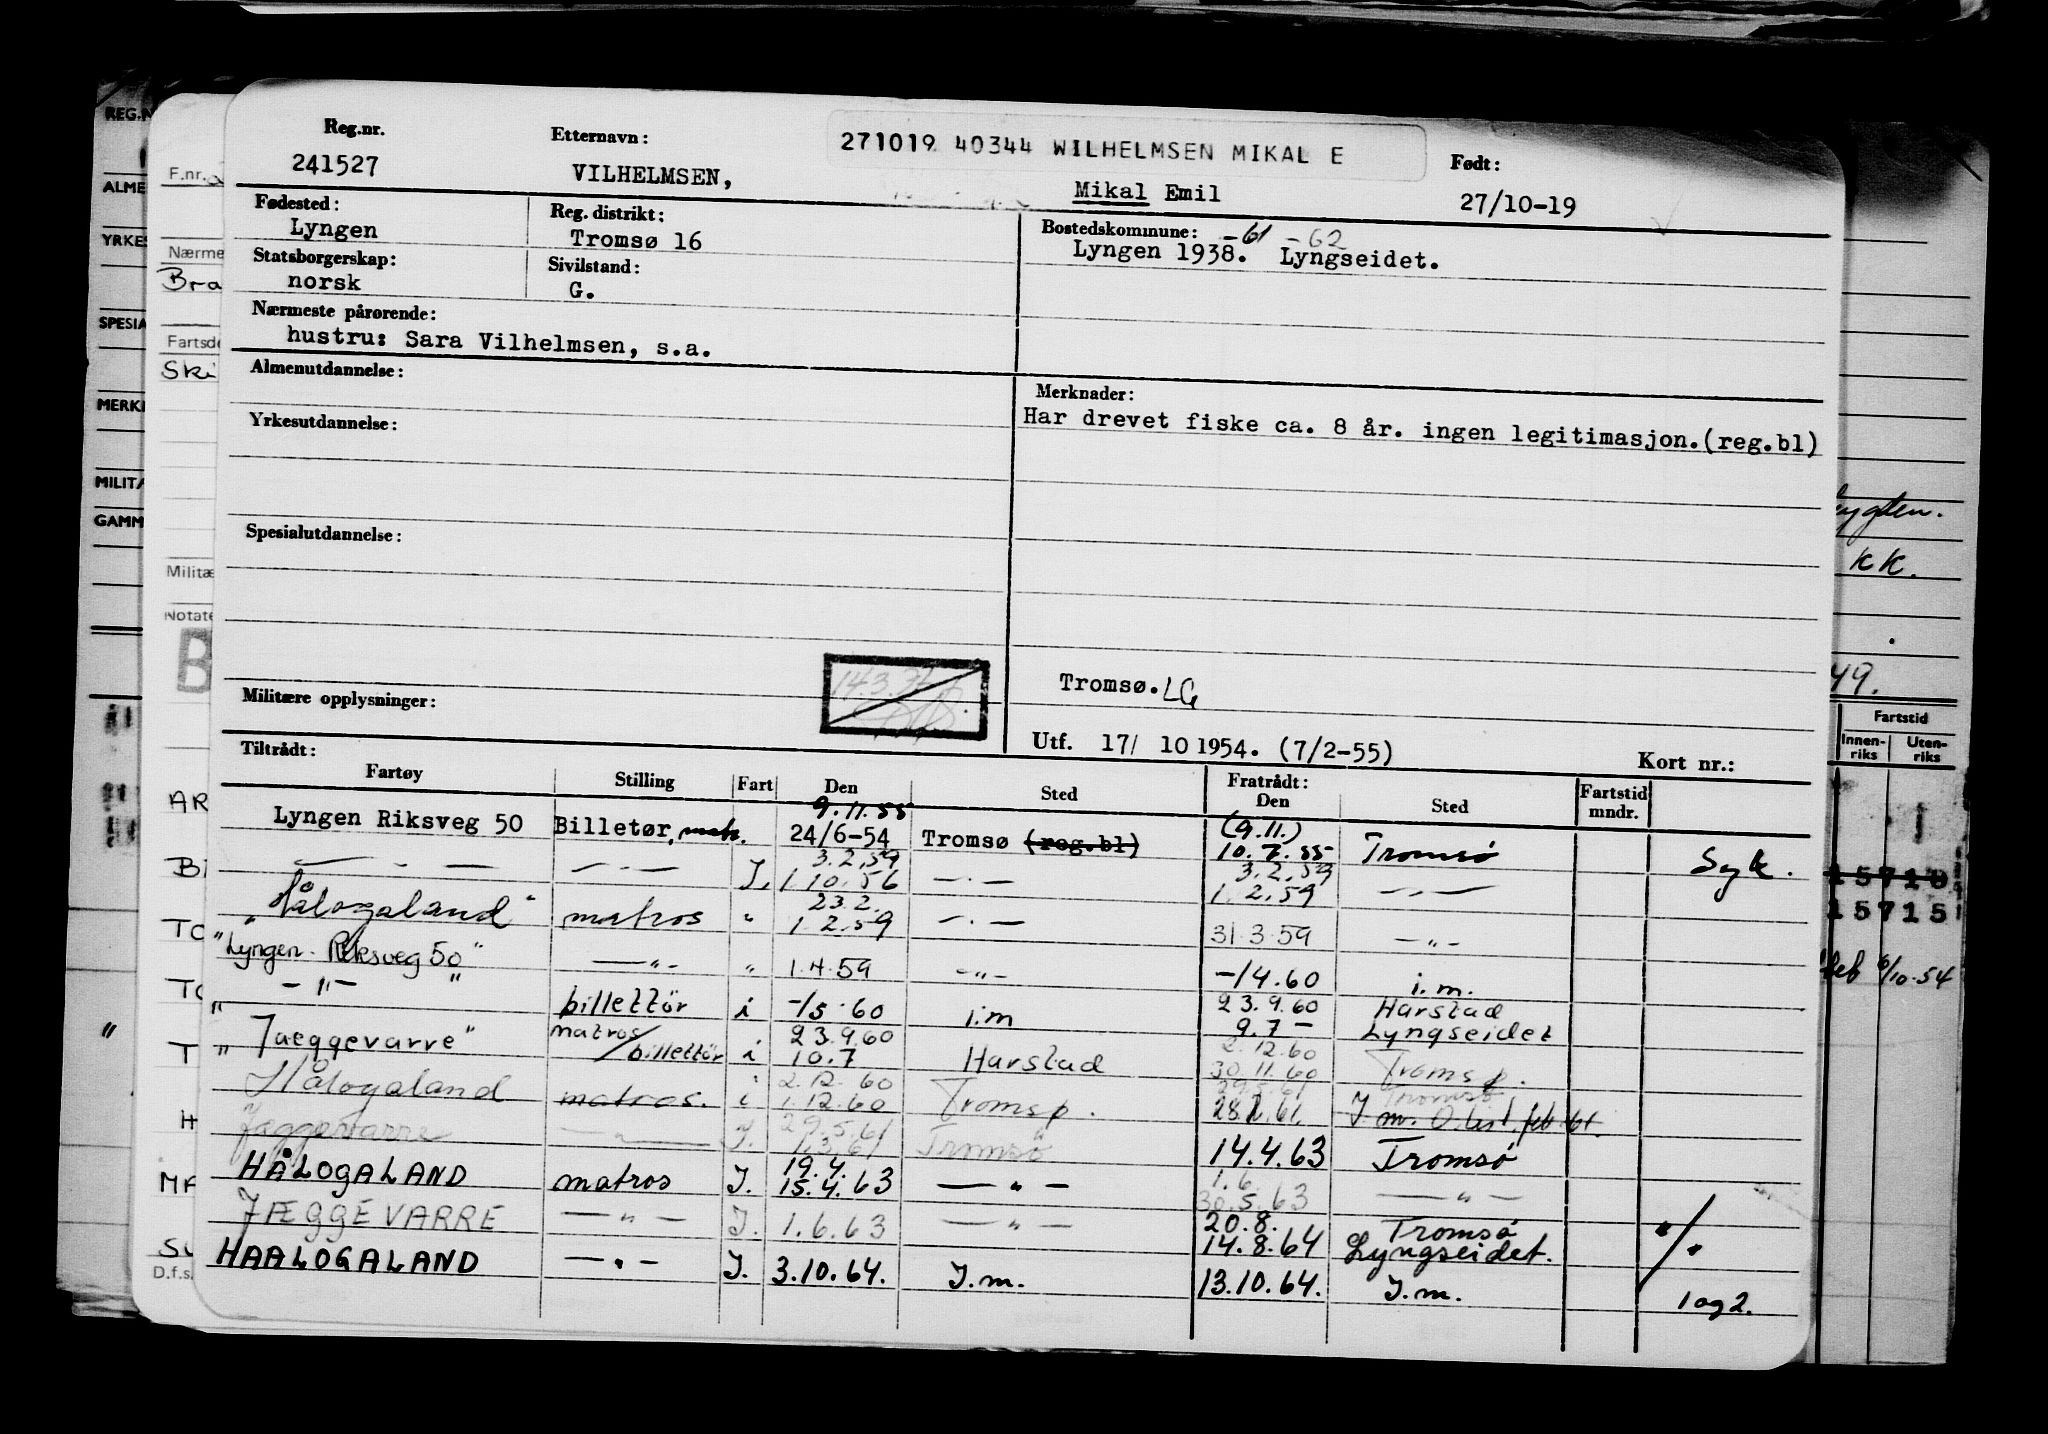 Reg.nr. Etternavn: 271019 40344 WILHELMSEN MIKAL E Født:
241527 VILHELMSEN, Mikal Emil 27/10-19
Fødested: Reg. distrikt: Bostedskommune: -61 -62
Lyngen Tromsø 16 Lyngen 1938. Lyngseidet.
Statsborgerskap: Sivilstand:
norsk G.
Nærmeste pårørende:
hustru: Sara Vilhelmsen, s.a.
Almenutdannelse: Merknader:
Har drevet fiske ca. 8 år. ingen legitimasjon.(reg.bl)
Yrkesutdannelse:
Spesialutdannelse:
14.3.
Militære opplysninger: Tromsø. LG
Utf. 17/ 10 1954. (7/2-55) Kort nr.:
Tiltrådt: Fratrådt:
Fartøy Stilling Fart Den Sted Den Sted Fartstid mndr.
9.11.55 (9.11.)
Lyngen Riksveg 50 Billetør, matr. 24/6-54 Tromsø (reg.bl) 10.7.55 Tromsø Syk.
3.2.59 3.2.59
— . — — . — I. 1.10.56 — . — 1.2.59 — " —
23.2.
"Hålogaland" matros " 1.2.59 — . — 31.3.59 — " —
"Lyngen - Riksveg 50" — " — " 1.4.59 — " — -/4.60 i.m.
" — " — " billettør i -/5.60 i.m 23.9.60 Harstad
23.9.60 9.7 — Lyngseidet
"Jaeggevarre" matros/billettør i 10.7 Harstad 2.12.60
2.12.60 30.11.60 Tromsø.
Hålogaland matros. i 1.12.60 Tromsø. 29.5.61 Tromsø
28.2.61. I.m. O.list. feb 61.
29.5.61
Jæggevarre — " — I. 1.3.61 Tromsø 14.4.63 Tromsø
19.4. 1.6.
HÅLOGALAND matros I. 15.4.63 — " — 30.5.63 — " —
JÆGGEVARRE — " — I. 1.6.63 — " — 20.8. Tromsø "/"
14.8.64 Lyngseidet.
HAALOGALAND — " — I. 3.10.64. I.m. 13.10.64. I.m. 1 og 2.
REG.N
ALME
YRKES
SPESIA
MERK
MILITÆ
GAMM
F.nr.
Nærme
Bra
Fartsde
Ski
Militæ
Notate
B
AR
TO
TO
T
H
MA
D.f.s.
KK.
49.
Fartstid
Innen-riks Uten-riks
15710
15715
feb 6/10-54